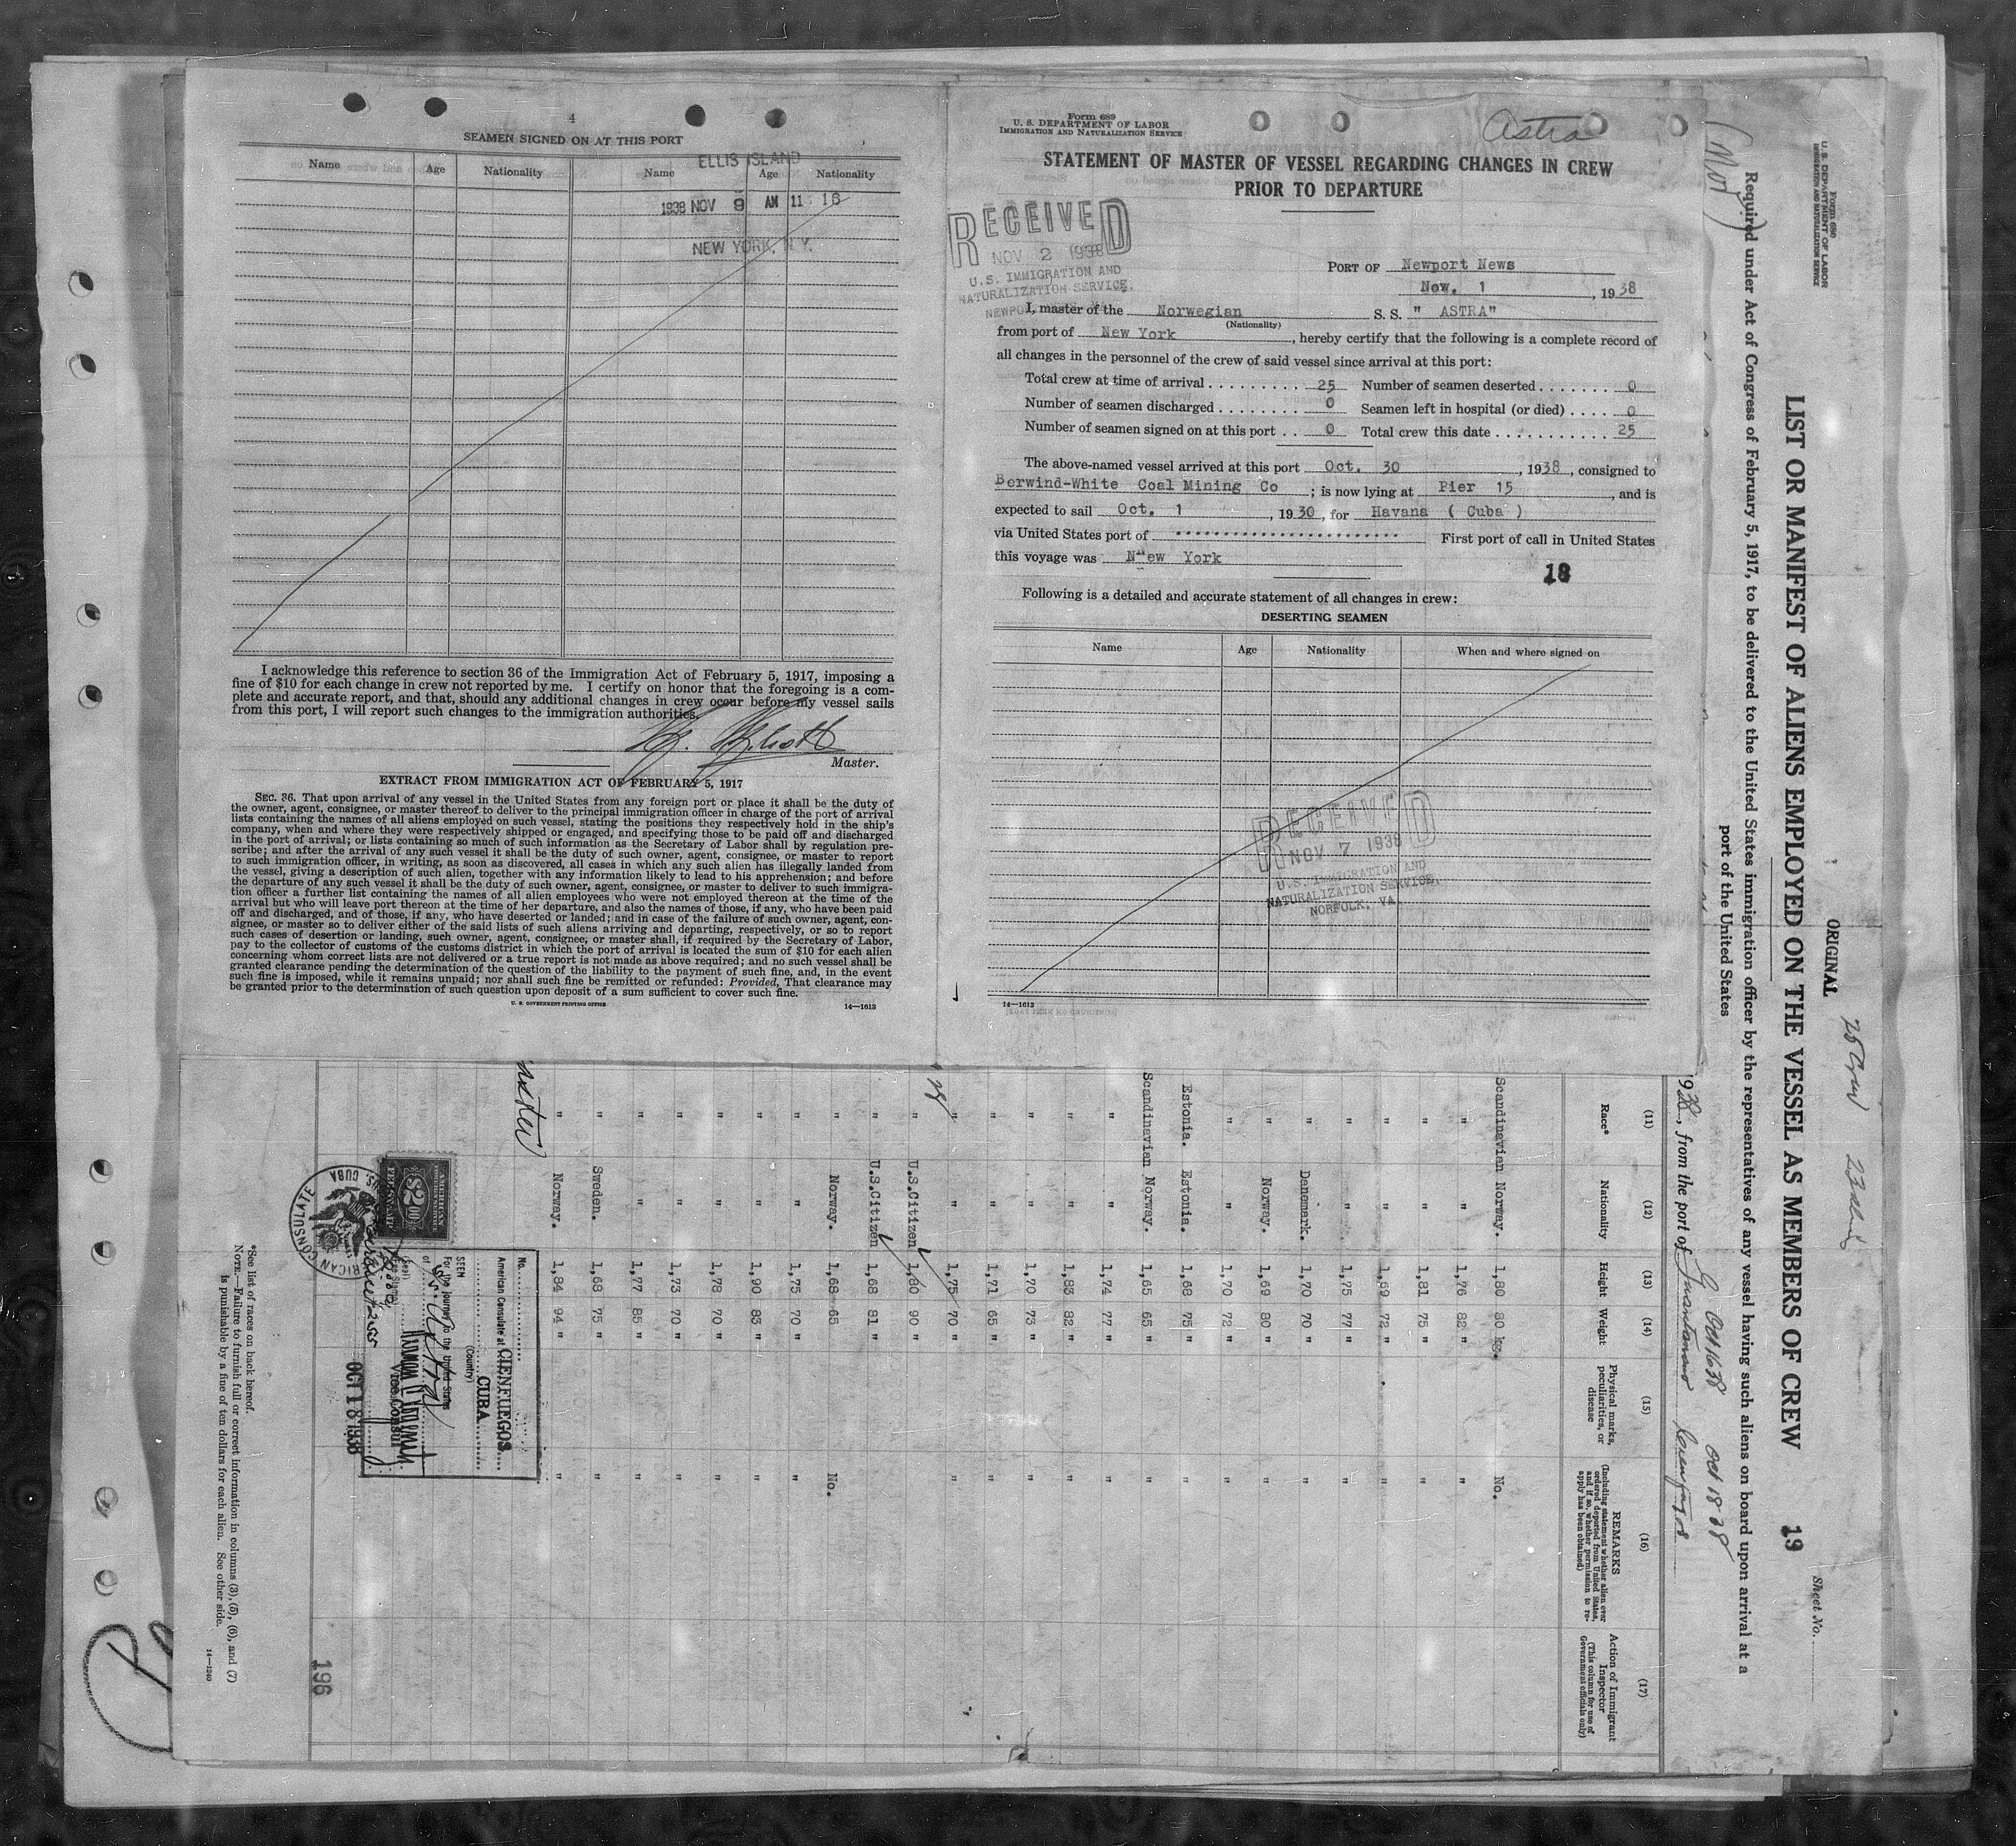 4
SEAMEN SIGNED ON AT THIS PORT
Name Age Nationality Name Age Nationality
ELLIS ISLAND
1938 NOV 9 AM 11 : 16
NEW YORK, N.Y.
I acknowledge this reference to section 36 of the Immigration Act of February 5, 1917, imposing a
fine of $10 for each change in crew not reported by me. I certify on honor that the foregoing is a com-
plete and accurate report, and that, should any additional changes in crew occur before my vessel sails
from this port, I will report such changes to the immigration authorities.
Master.
EXTRACT FROM IMMIGRATION ACT OF FEBRUARY 5, 1917
SEC. 36. That upon arrival of any vessel in the United States from any foreign port or place it shall be the duty of
the owner, agent, consignee, or master thereof to deliver to the principal immigration officer in charge of the port of arrival
lists containing the names of all aliens employed on such vessel, stating the positions they respectively hold in the ship's
company, when and where they were respectively shipped or engaged, and specifying those to be paid off and discharged
in the port of arrival; or lists containing so much of such information as the Secretary of Labor shall by regulation pre-
scribe; and after the arrival of any such vessel it shall be the duty of such owner, agent, consignee, or master to report
to such immigration officer, in writing, as soon as discovered, all cases in which any such alien has illegally landed from
the vessel, giving a description of such alien, together with any information likely to lead to his apprehension; and before
the departure of any such vessel it shall be the duty of such owner, agent, consignee, or master to deliver to such immigra-
tion officer a further list containing the names of all alien employees who were not employed thereon at the time of the
arrival but who will leave port thereon at the time of her departure, and also the names of those, if any, who have been paid
off and discharged, and of those, if any, who have deserted or landed; and in case of the failure of such owner, agent, con-
signee, or master so to deliver either of the said lists of such aliens arriving and departing, respectively, or so to report
such cases of desertion or landing, such owner, agent, consignee, or master shall, if required by the Secretary of Labor,
pay to the collector of customs of the customs district in which the port of arrival is located the sum of $10 for each alien
concerning whom correct lists are not delivered or a true report is not made as above required; and no such vessel shall be
granted clearance pending the determination of the question of the liability to the payment of such fine, and, in the event
such fine is imposed, while it remains unpaid; nor shall such fine be remitted or refunded: Provided, That clearance may
be granted prior to the determination of such question upon deposit of a sum sufficient to cover such fine.
U. S. GOVERNMENT PRINTING OFFICE 14—1613
Form 689
U. S. DEPARTMENT OF LABOR
IMMIGRATION AND NATURALIZATION SERVICE
Astra
STATEMENT OF MASTER OF VESSEL REGARDING CHANGES IN CREW
PRIOR TO DEPARTURE
RECEIVED
NOV 2 1938
U.S. IMMIGRATION AND
NATURALIZATION SERVICE,
PORT OF Newport News
Nov. 1, 1938
I, master of the Norwegian S. S. " ASTRA"
(Nationality)
from port of New York, hereby certify that the following is a complete record of
all changes in the personnel of the crew of said vessel since arrival at this port:
Total crew at time of arrival 25 Number of seamen deserted 0
Number of seamen discharged 0 Seamen left in hospital (or died) 0
Number of seamen signed on at this port 0 Total crew this date 25
The above-named vessel arrived at this port Oct. 30, 1938, consigned to
Berwind-White Coal Mining Co; is now lying at Pier 15, and is
expected to sail Oct. 1, 1930, for Havana ( Cuba )
via United States port of First port of call in United States
this voyage was N"ew York
18
Following is a detailed and accurate statement of all changes in crew:
DESERTING SEAMEN
Name Age Nationality When and where signed on
RECEIVED
NOV 7 1938
U.S. IMMIGRATION AND
NATURALIZATION SERVICE,
NORFOLK, VA
14—1613
Form 680
U. S. DEPARTMENT OF LABOR
IMMIGRATION AND NATURALIZATION SERVICE
ORIGINAL
Sheet No.
LIST OR MANIFEST OF ALIENS EMPLOYED ON THE VESSEL AS MEMBERS OF CREW 19
Required under Act of Congress of February 5, 1917, to be delivered to the United States immigration officer by the representatives of any vessel having such aliens on board upon arrival at a
port of the United States
Oct 16 38 Oct 18 38
938, from the port of Guantanamo Cienfuegos
(11) (12) (13) (14) (15) (16) (17)
Race* Nationality Height Weight Physical marks, peculiarities, or disease REMARKS (Including statement whether alien ever ordered deported from United States, and if so, whether permission to re-apply has been obtained) Action of Immigrant Inspector (This column for use of Government officials only)
Scandinavian Norway. 1,80 80 kg. No.
" " 1,76 82 " "
" " 1,81 75 " "
" " 1,69 72 " "
" " 1,75 77 "
" Danemark. 1,70 70 " "
" Norway. 1,69 80 " "
" " 1,70 72 " "
Estonia. Estonia. 1,68 75 " "
Scandinavian Norway. 1,65 65 " "
" " 1,74 77 " "
" " 1,83 82 " "
" " 1,70 73 " "
" " 1,71 65 " "
" " 1,75 70 " "
" U.S.Citizen 1,80 90 "
" U.S.Citizen 1,68 81 "
" Norway. 1,68 65 No.
" " 1,75 70 " "
" " 1,90 83 " "
" " 1,78 70 " "
" " 1,73 70 " "
" " 1,77 85 " "
" Sweden. 1,68 75 " "
" Norway. 1,84 94 " "
No.
American Consulate at CIENFUEGOS,
CUBA
(Country)
SEEN
For the journey to the United States
of S.S. Astra
(Seal)
Vice Consul
OCT 18 1938
AMERICAN
$2.00
AMERICAN CONSULATE
CUBA
196
*See list of races on back hereof.
NOTE.—Failure to furnish full or correct information in columns (3), (5), (6), and (7)
is punishable by a fine of ten dollars for each alien. See other side.
14—1240